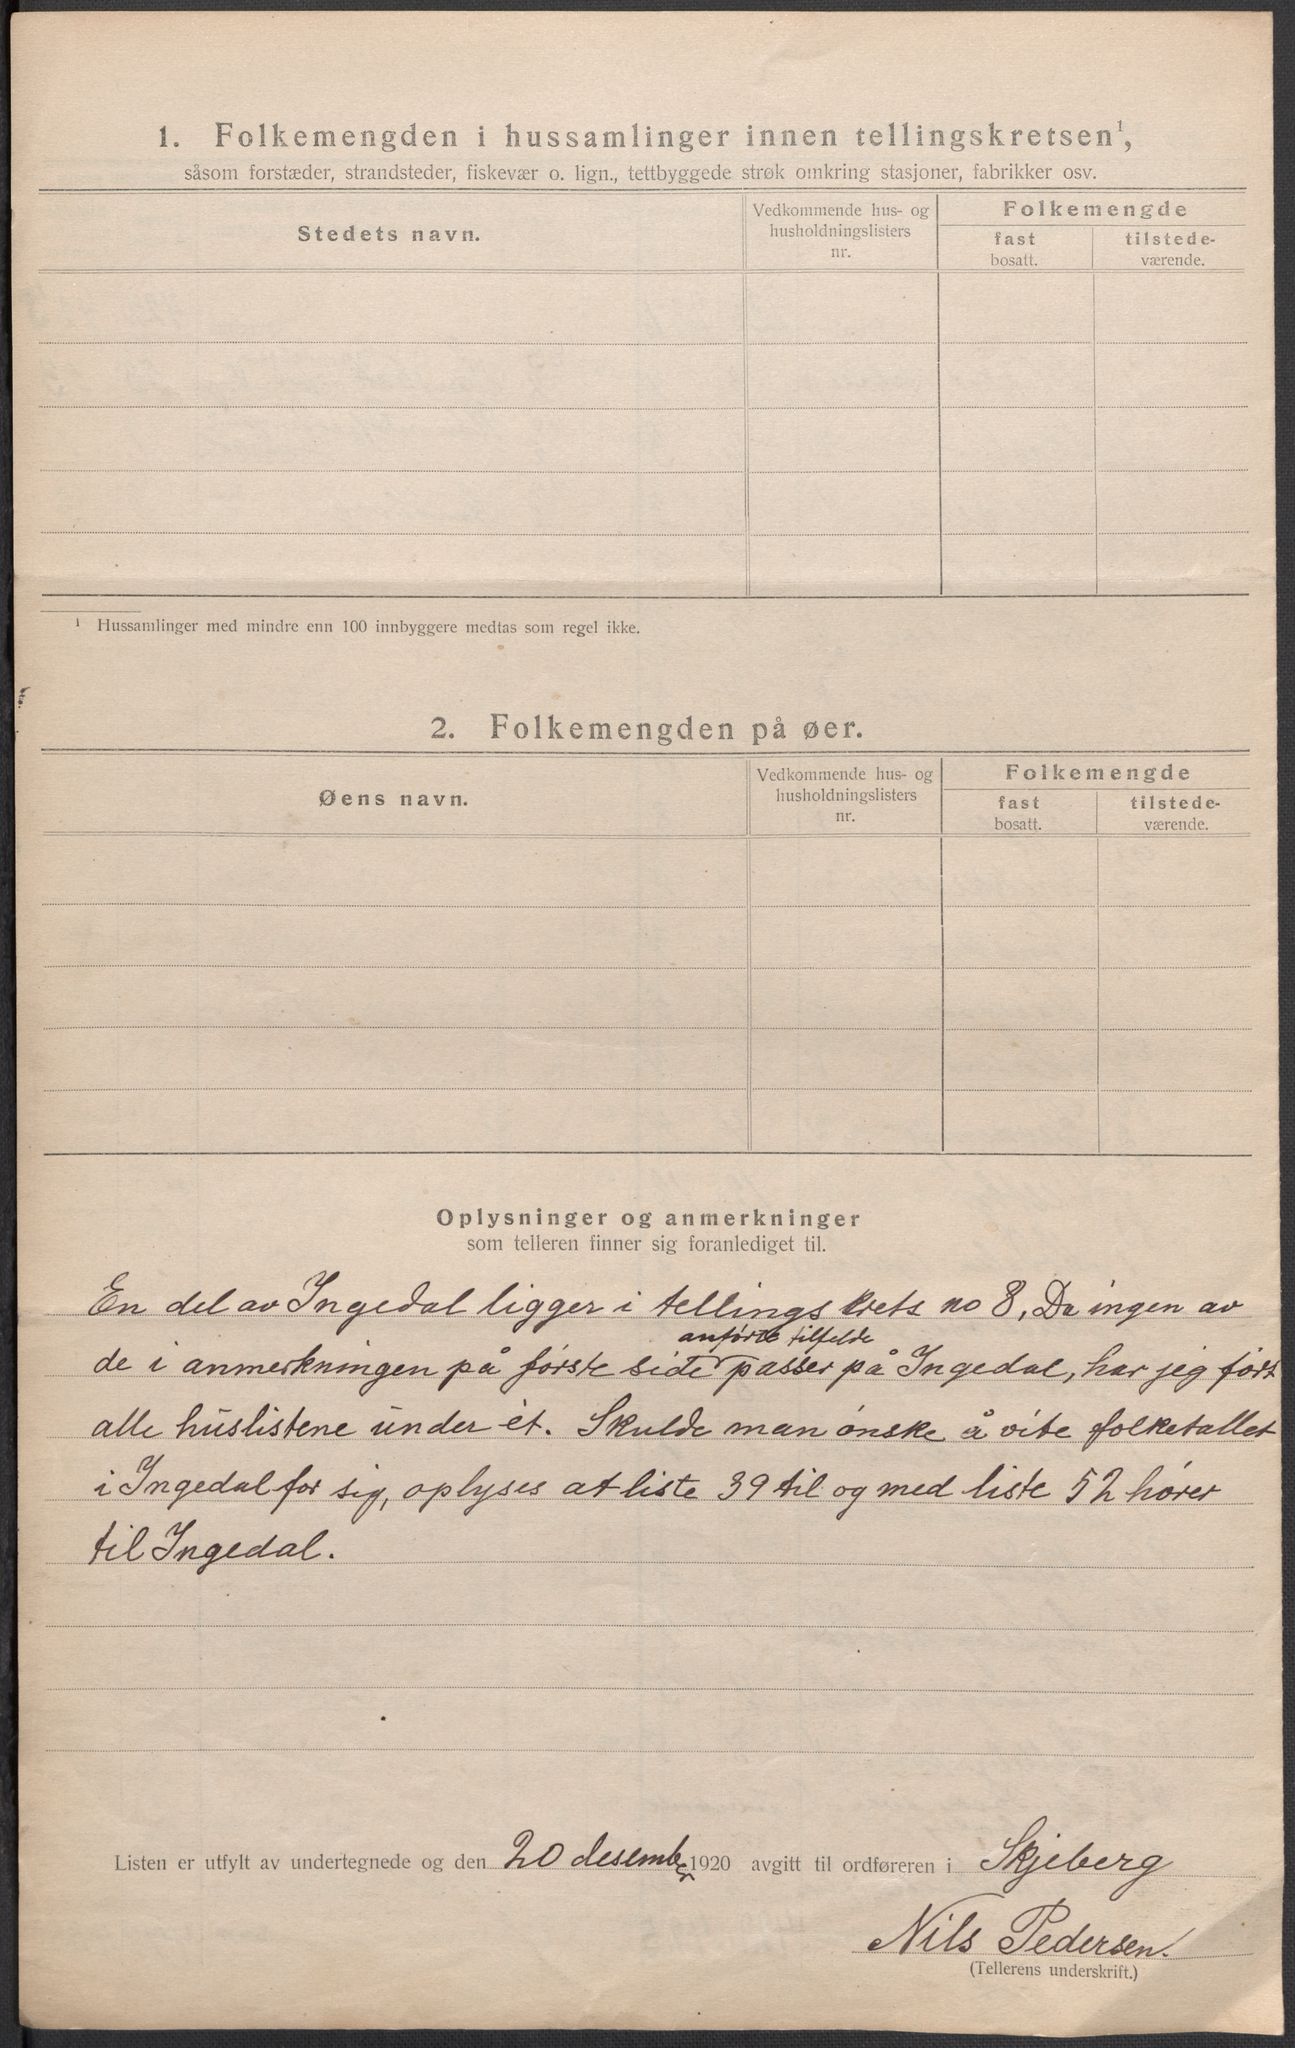 1. Folkemengden i hussamlinger innen tellingskretsen¹,
såsom forstæder, strandsteder, fiskevær o. lign., tettbyggede strøk omkring stasjoner, fabrikker osv.
Stedets navn.
Vedkommende hus- og
husholdningslisters
nr.
Folkemengde
fast
bosatt.
tilstede-
værende.
¹ Hussamlinger med mindre enn 100 innbyggere medtas som regel ikke.
2. Folkemengden på øer.
Øens navn.
Vedkommende hus- og
husholdningslisters
nr.
Folkemengde
fast
bosatt.
tilstede-
værende.
Oplysninger og anmerkninger
som telleren finner sig foranlediget til.
En del av Ingedal ligger i tellingskrets no 8. Da ingen av
anførte tilfelde
de i anmerkningen på første side passer på Ingedal, har jeg ført
alle huslistene under ét. Skulde man ønske å vite folketallet
i Ingedal for sig, oplyses at liste 39 til og med liste 52 hører
til Ingedal.
Listen er utfylt av undertegnede og den 20 desember 1920 avgitt til ordføreren i Skjeberg
Nils Pedersen.
(Tellerens underskrift.)